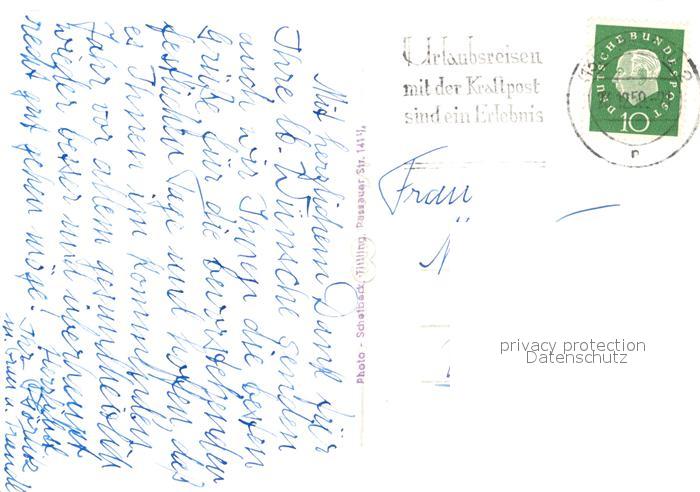 Mit herzlichem Dank für
Ihre lb. Wünsche senden
auch wir Ihnen die besten
Grüße für die bevorstehenden
festlichen Tage und hoffen, daß
es Ihnen im kommenden
Jahr vor allem gesundheitlich
wieder besser und überhaupt
recht gut gehen möge! Herzlichst
Photo - Scheibeck, Tittling, Passauer Str. 141½
Urlaubsreisen
mit der Kraftpost
sind ein Erlebnis
DEUTSCHE BUNDESPOST
10
Frau
privacy protection
Datenschutz